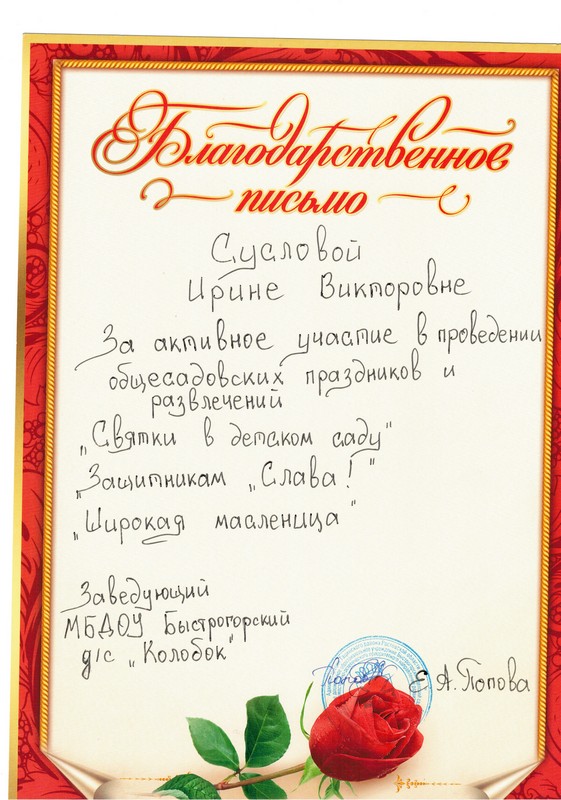 Благодарственное
письмо
Сусловой
Ирине Викторовне
За активное участие в проведении
общесадовских праздников и
развлечений
„Святки в детском саду"
„Защитникам „Слава!"
„Широкая масленица"
Заведующий
МБДОУ Быстрогорский
д/с „Колобок"
Е А. Попова